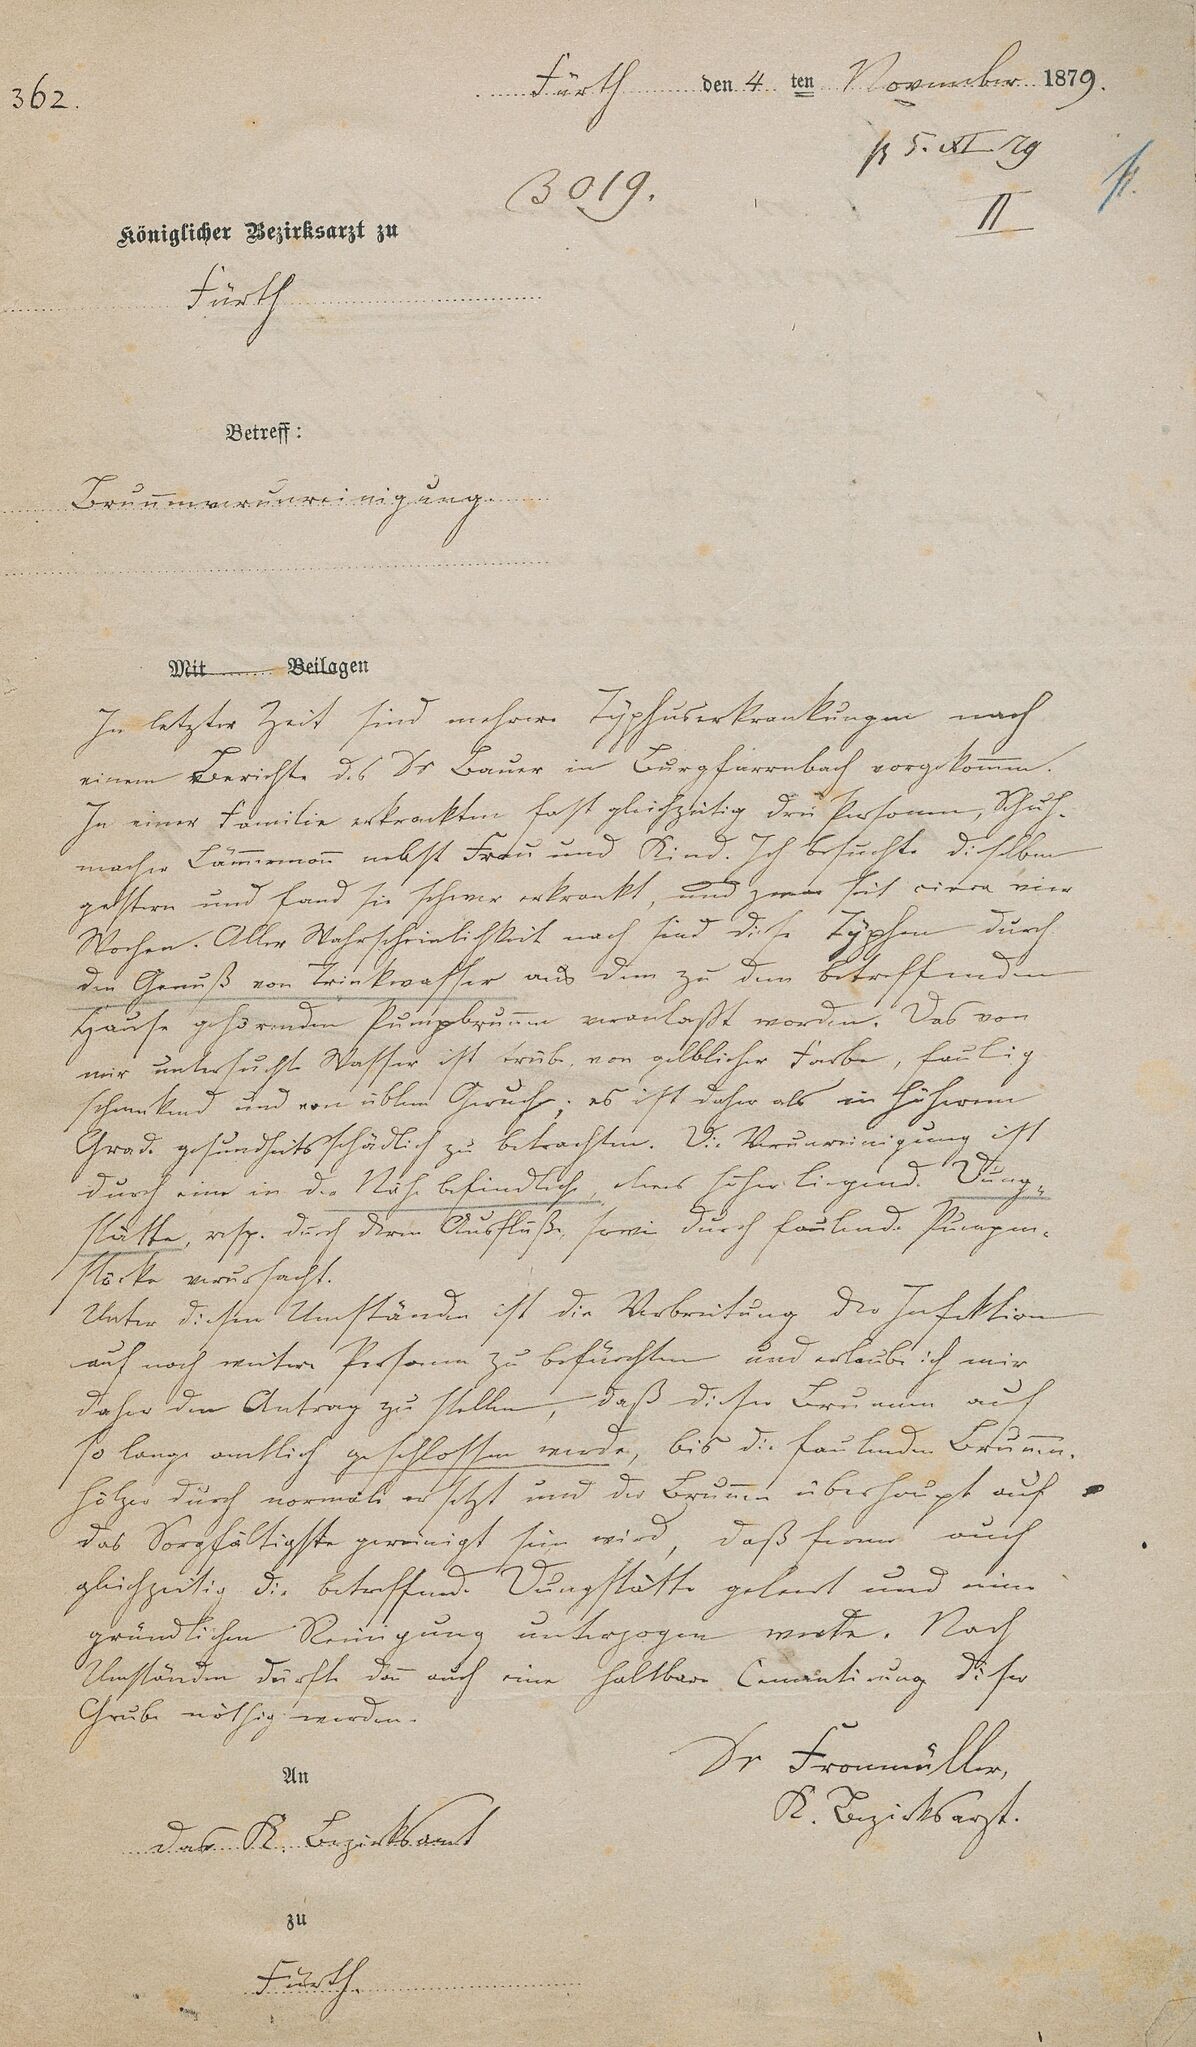 362.
Fürth den 4 ten November 1879.
5. XI. 79
3019.
II
Königlicher Bezirksarzt zu
Fürth
Betreff:
Brunnenverunreinigung.
Mit Beilagen
In letzter Zeit sind mehrere Typhuserkrankungen nach
einem Berichte des Dr Bauer in Burgfarrnbach vorgekommen.
In einer Familie erkrankten fast gleichzeitig drei Personen, Schuh-
macher Lämmermann nebst Frau und Kind. Ich besuchte dieselben
gestern und fand sie schwer erkrankt, und zwar seit circa vier
Wochen. Aller Wahrscheinlichkeit nach sind diese Typhen durch
den Genuß von Trinkwasser aus dem zu dem betreffenden
Hause gehörenden Pumpbrunnen veranlaßt worden. Das von
mir untersuchte Wasser ist trübe, von gelblicher Farbe, faulig
schmeckend und von üblem Geruch; es ist daher als in höherem
Grade gesundheitsschädlich zu betrachten. Die Verunreinigung ist
durch eine in der Nähe befindliche, etwas höher liegende Dung-
stätte, resp. durch deren Ausflüße, sowie durch faulende Pumpen-
stöcke verursacht.
Unter diesen Umständen ist die Verbreitung der Infektion
auf noch weitere Personen zu befürchten und erlaube ich mir
daher den Antrag zu stellen, daß dieser Brunnen auf
so lange amtlich geschlossen werde, bis die faulenden Brunnen-
hölzer durch normale ersetzt und der Brunnen überhaupt auf
das Sorgfältigste gereinigt sein wird, daß ferner auch
gleichzeitig die betreffende Dungstätte geleert und einer
gründlichen Reinigung unterzogen werde. Nach
Umständen dürfte dann auch eine haltbare Cementirung dieser
Grube nöthig werden.
Dr Fronmüller,
K. Bezirksarzt.
An
das K. Bezirksamt
zu
Fürth.